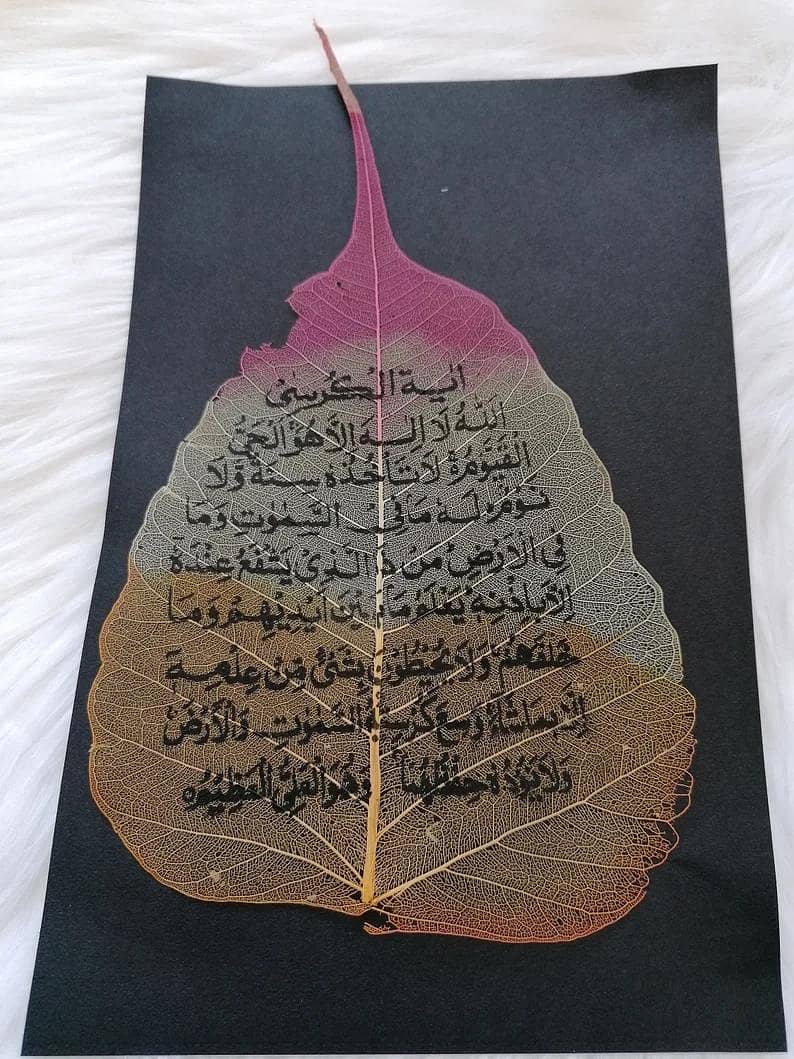 اٰيـة الـكُرسىْ
اَللّٰهُ لَا اِلٰـهَ اِلَّا هُوَ اَلْحَىُّ
الْقَيُّوْمُ ۚ لَا تَاخُذُهٗ سِـنَةٌ وَّلَا
نَـوْمٌ ؕ لَـهٗ مَا فِىْ السَّمٰوٰتِ وَمَا
فِى الْاَرْضِ ؕ مَنْ ذَا الَّذِىْ يَشْفَعُ عِنْدَهٗ
اِلَّا بِاِذْنِهٖ ؕ يَعْلَمُ مَا بَيْنَ اَيْدِيْهِمْ وَمَا
خَلْفَهُمْ ۚ وَلَا يُحِيْطُوْنَ بِشَىْءٍ مِّنْ عِلْمِهٖ
اِلَّا بِمَا شَآءَ ۚ وَسِعَ كُرْسِيُّهُ السَّمٰوٰتِ وَالْاَرْضَ
وَلَا يَؤُدُهٗ حِفْظُهُمَا ۚ وَهُوَ الْعَلِىُّ الْعَظِيْمُ ه